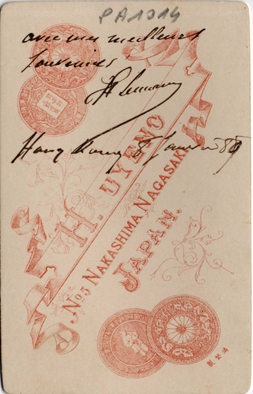 PA1014
avec mes meilleurs
souvenirs
Hong Kong 8 Janvier 89
H. UYENO
No. 5 NAKASHIMA NAGASAKI
JAPAN.